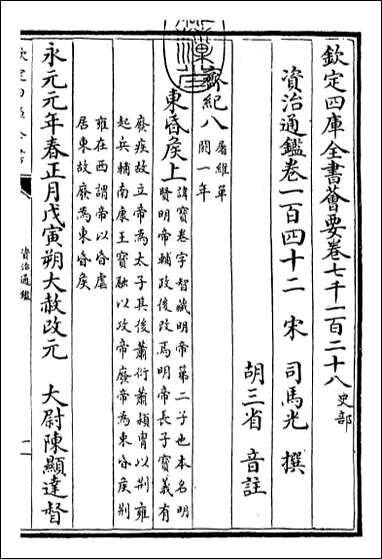 欽定四庫全書薈要卷七千一百二十八 史部
資治通鑑卷一百四十二 宋 司馬光 撰
胡三省 音註
齊紀八 屠維單閼一年
東昏侯上 諱寶卷字智藏明帝第二子也本名明
賢明帝輔政後改焉明帝長子寶義有
廢疾故立帝為太子其後蕭衍蕭穎胄以荆雍
起兵輔南康王寶融以攻帝廢帝為東昏侯荆
雍在西謂帝以昏虐
居東故廢為東昏侯
永元元年春正月戊寅朔大赦改元 大尉陳顯達督
資治通鑑
一